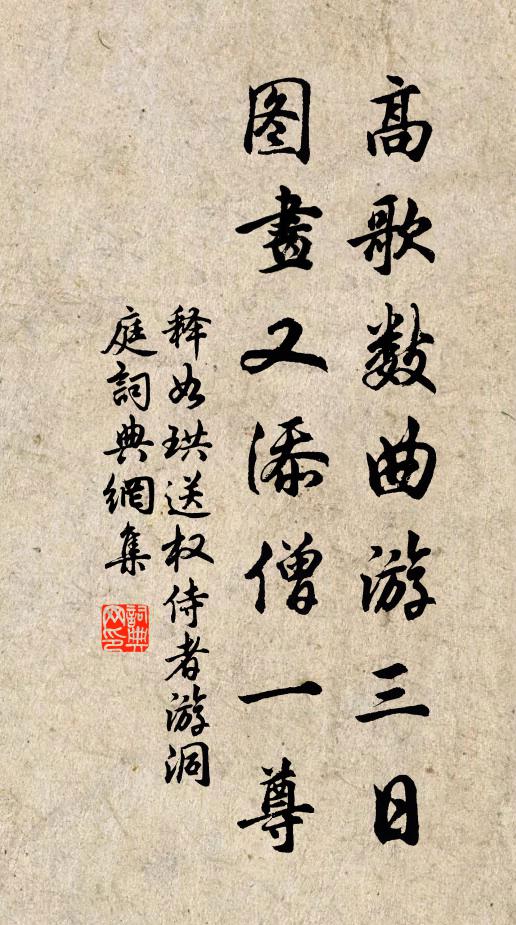 高歌数曲游三日
图畫又添僧一尊
释如珙送权侍者游洞
庭詞典網集
詞典
网印